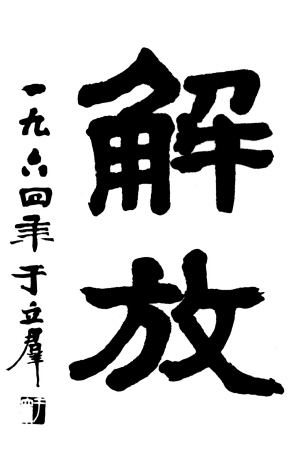 解放
一九六四年于立羣